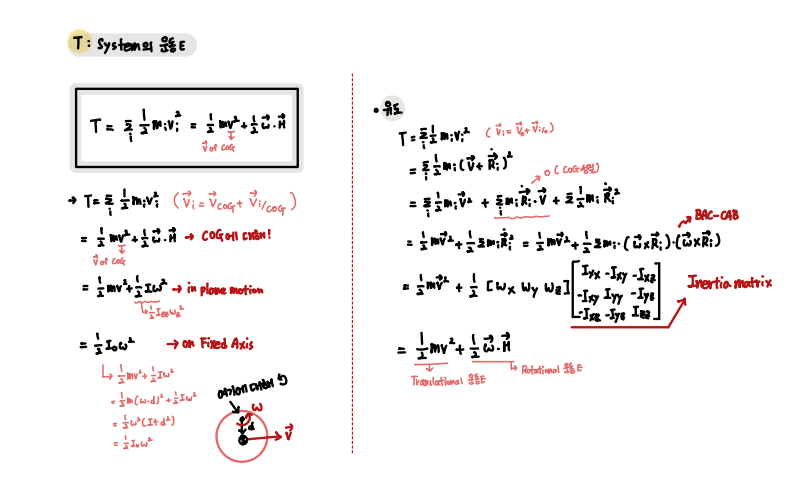 T: System의 운동E
T = Σᵢ ½ mᵢvᵢ² = ½ mv² + ½ ω⃗·H⃗
v⃗ of COG
→ T = Σᵢ ½ mᵢvᵢ² (V⃗ᵢ = V⃗COG + V⃗ᵢ/COG)
= ½ mv² + ½ ω⃗·H⃗ → COG에 대해!
v⃗ of COG
= ½ mv² + ½ Iω² → in plane motion
½ Izz ωz²
= ½ I₀ω² → on Fixed Axis
½ mv² + ½ Iω²
= ½ m(ω·d)² + ½ Iω²
= ½ ω²(I+d²)
= ½ I₀ω²
여기에 대해
ω
d
V⃗
• 유도
T = Σᵢ ½ mᵢvᵢ² (V⃗ᵢ = V⃗₀ + V⃗ᵢ/₀)
= Σᵢ ½ mᵢ (V⃗ + Ṙ⃗ᵢ)²
0 (COG성질)
= Σᵢ ½ mᵢ V⃗² + Σᵢ mᵢ Ṙ⃗ᵢ · V⃗ + Σ ½ mᵢ Ṙ⃗ᵢ²
BAC-CAB
= ½ mV⃗² + ½ Σ mᵢ Ṙ⃗ᵢ² = ½ mV⃗² + ½ Σ mᵢ · (ω⃗×R⃗ᵢ)·(ω⃗×R⃗ᵢ)
= ½ mV⃗² + ½ [ωx ωy ωz] [Iyx -Ixy -Ixz
-Ixy Iyy -Iyz
-Ixz -Iyz Izz]
Inertia matrix
= ½ mv² + ½ ω⃗·H⃗
Translational 운동E
Rotational 운동E